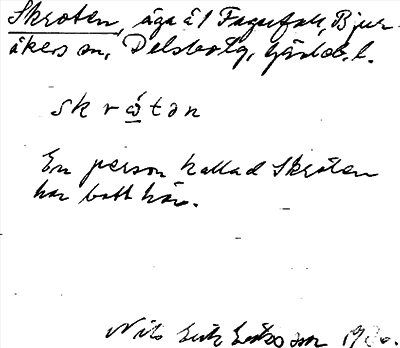 Skroten, äga å l Fagerfall, Bjur-
åkers sn, Delsbotg, Gävleb. l.
skrǻtən
En person kallad Skroten
har bott här.
Nils Erik Eriksson 1930.